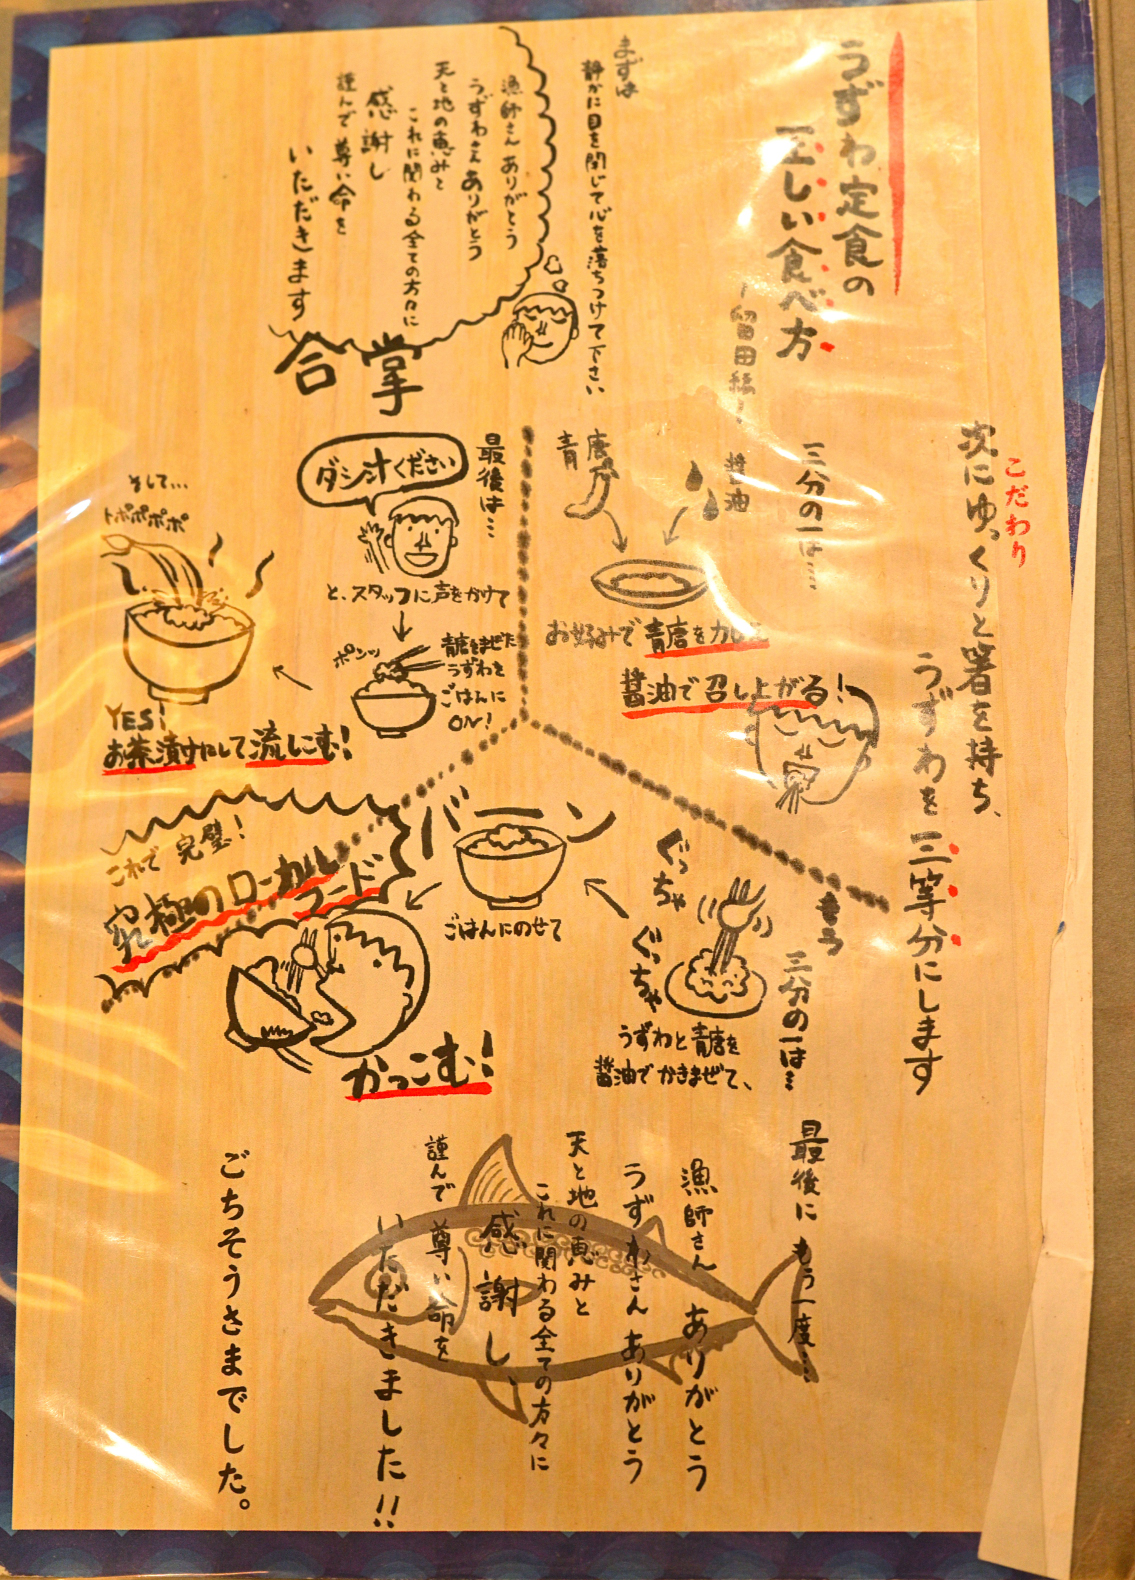 うずわ定食の
正しい食べ方
ー留田編ー
まずは
静かに目を閉じて心を落ちつけて下さい
漁師さん ありがとう
うずわさん ありがとう
天と地の恵みと
これに関わる全ての方々に
感謝し
謹んで 尊い命を
いただきます
合掌
こだわり
次にゆっくりと箸を持ち、
うずわを三等分にします
三分の一は…
醤油
青唐
お好みで青唐を加え
醤油で召し上がる!
もう
三分の一は…
ぐっちゃ
ぐっちゃ
うずわと青唐を
醤油でかきまぜて、
ごはんにのせて
バーン
かっこむ!
これで 完璧!
究極のローカル
フード
最後は…
ダシ汁ください
と、スタッフに声をかけて
青唐をまぜた
うずわを
ごはんに
ON!
ポンッ
そして…
トポポポポ
YES!
お茶漬けにして流しこむ!
最後に もう一度…
漁師さん ありがとう
うずわさん ありがとう
天と地の恵みと
これに関わる全ての方々に
感謝し、
謹んで 尊い命を
いただきました!!
ごちそうさまでした。